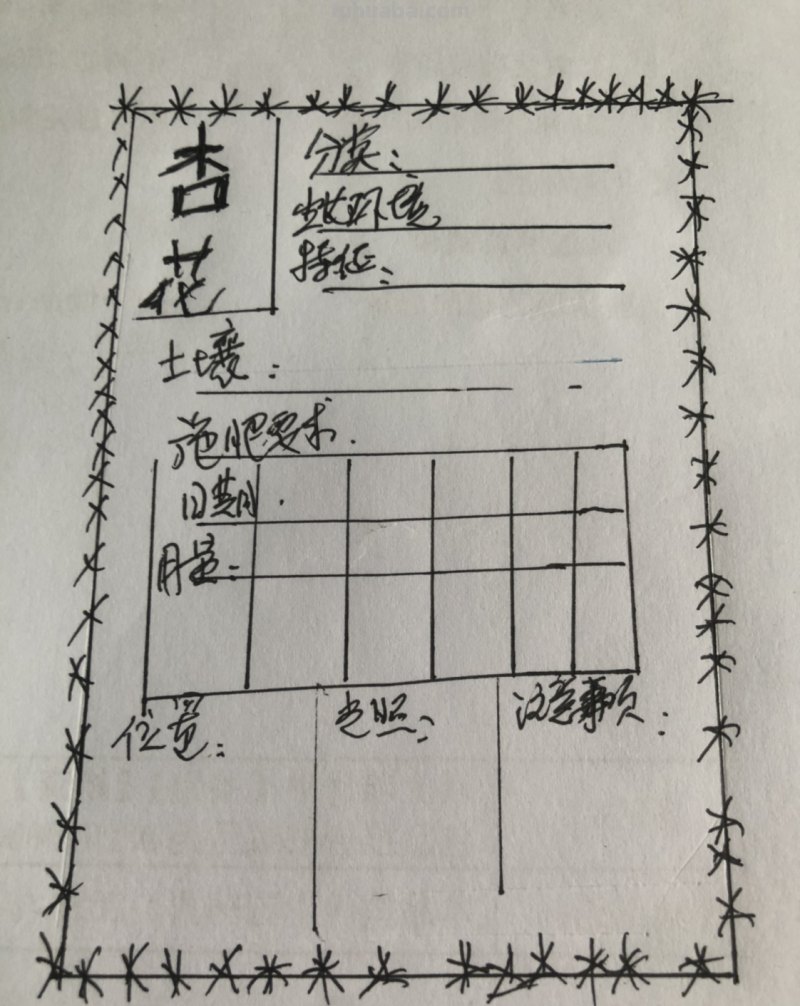 杏
花
分类:
生长环境
特征:
土壤:
施肥要求.
日期.
用量:
位置:
光照:
注意事项: